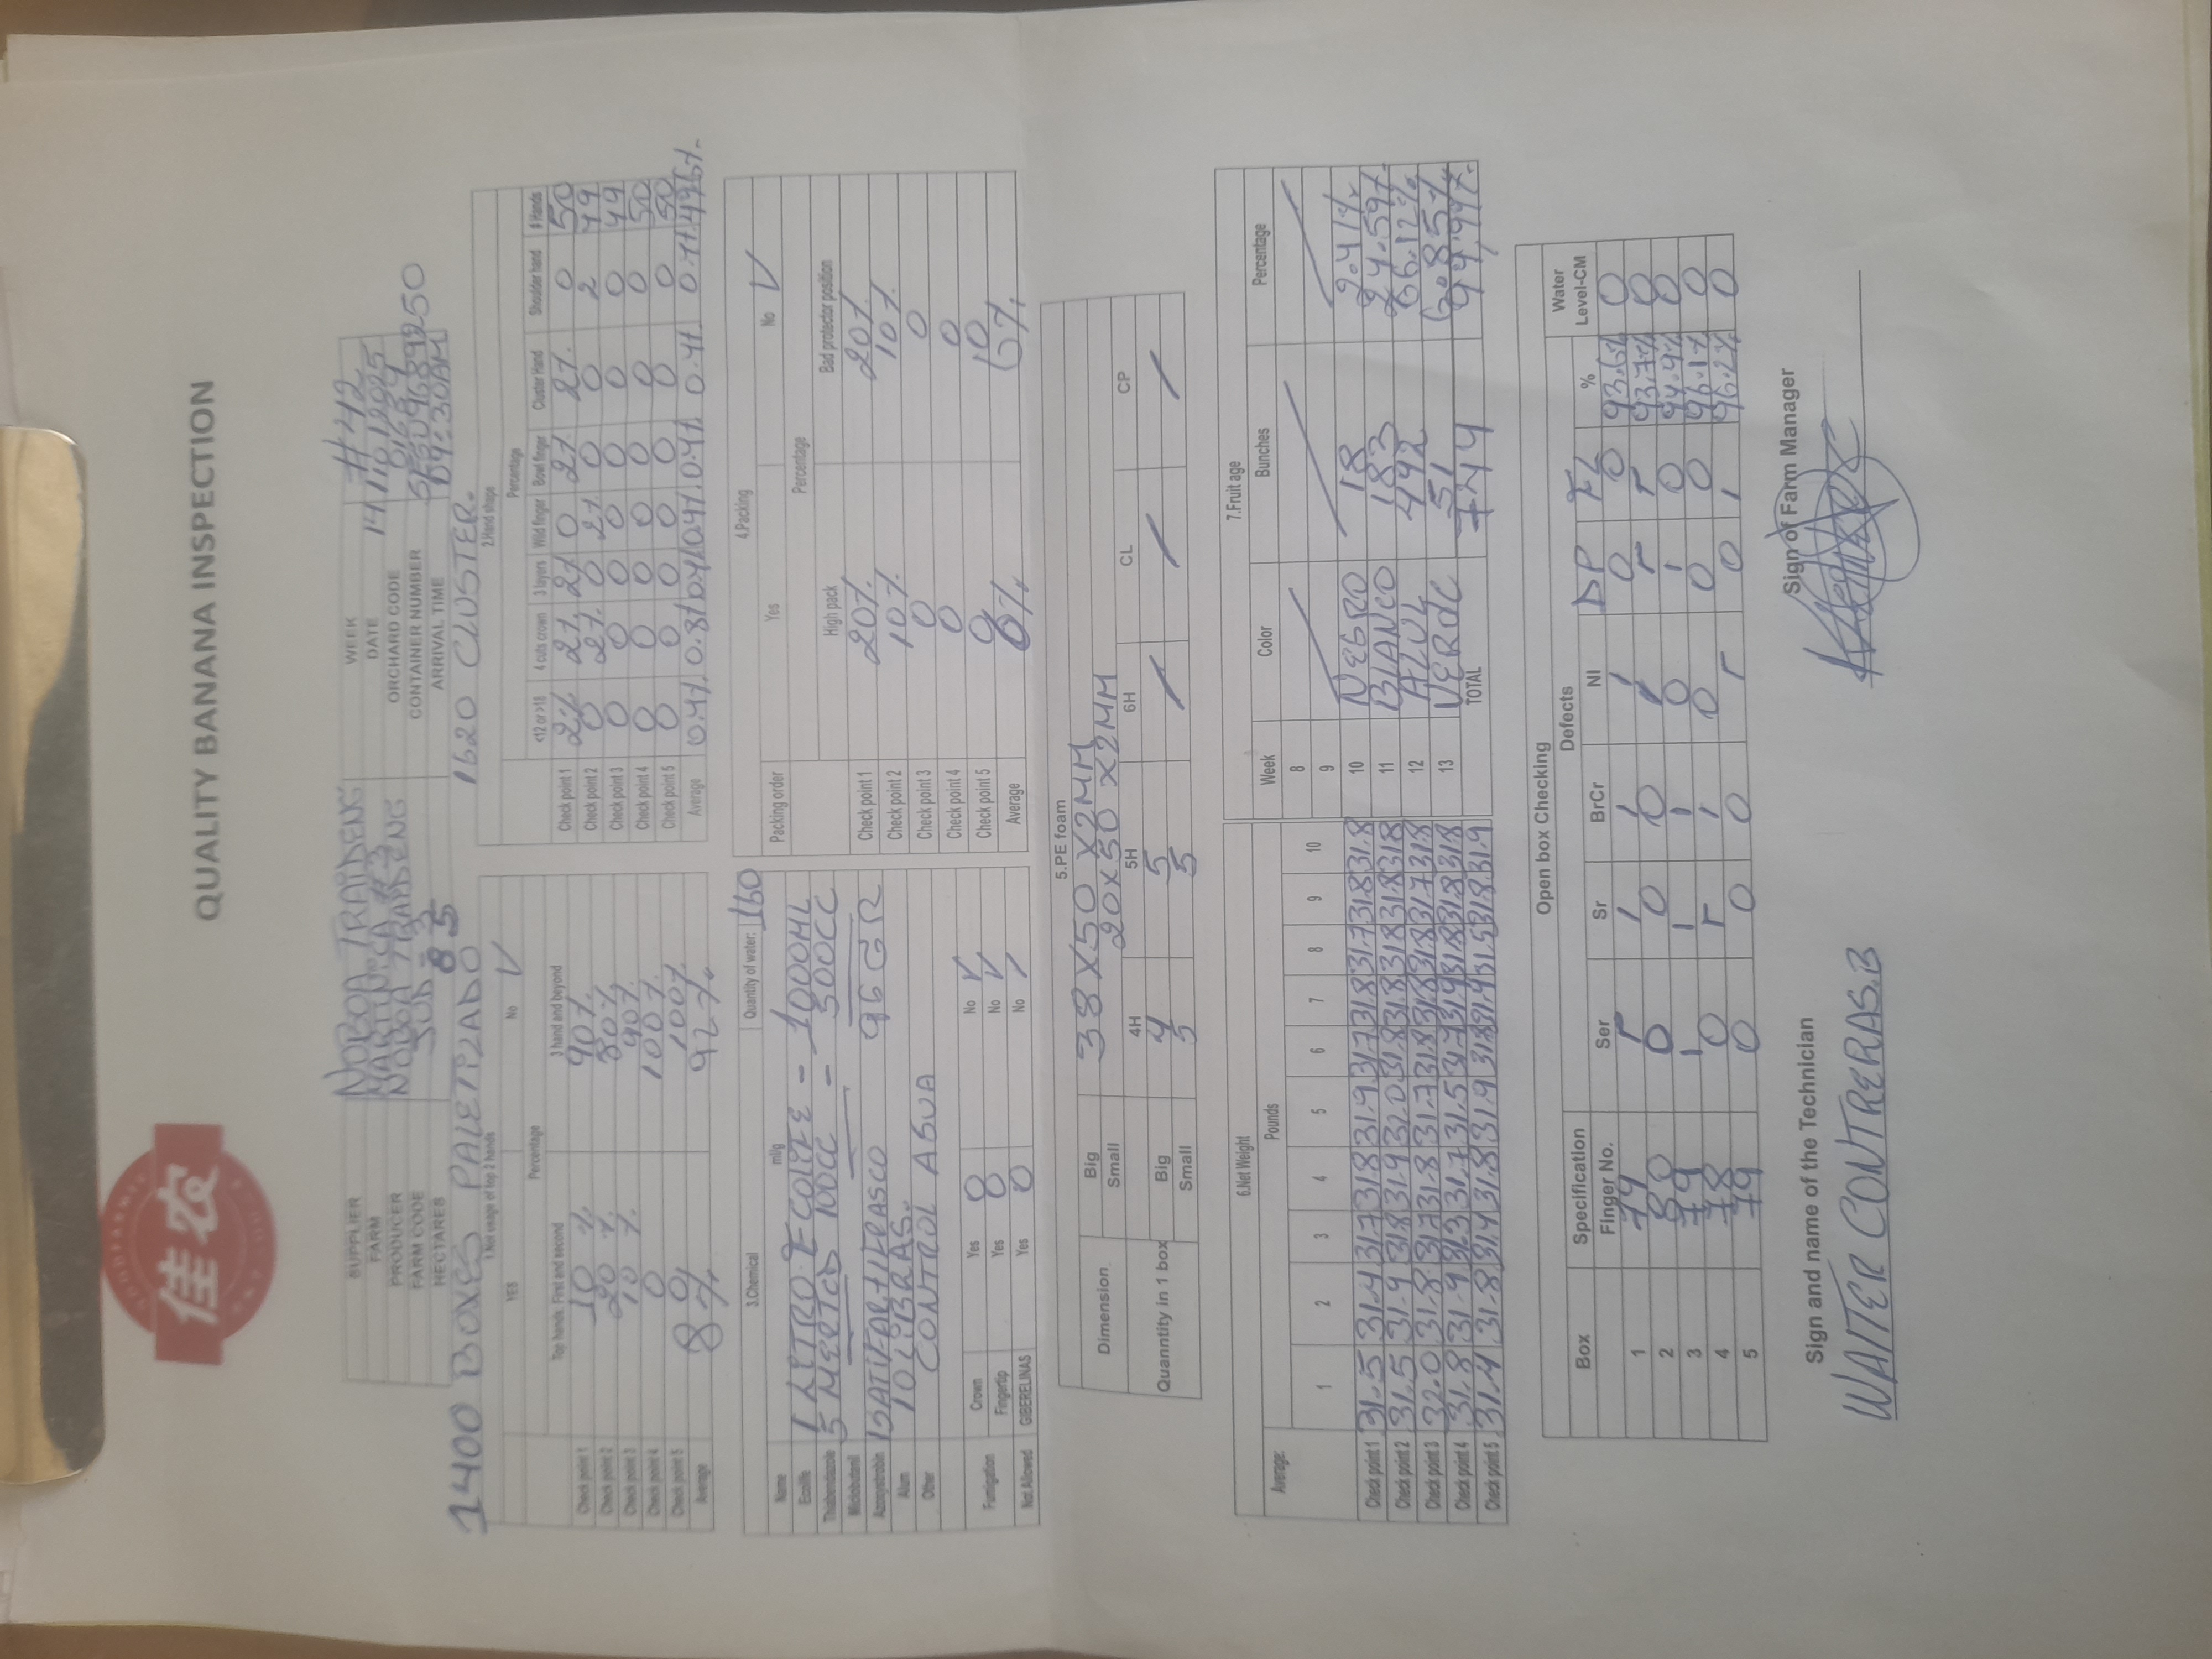 佳农
QUALITY BANANA INSPECTION
SUPPLIER NOBOA TRAIDENG WEEK #42
FARM MARTINICA #3 DATE 14/10/2025
PRODUCER NOBOA TRAIDENG ORCHARD CODE
FARM CODE JUB-3 CONTAINER NUMBER
HECTARES 85 ARRIVAL TIME 09:30AM
1400 BOXES PALETIZADO 1620 CLUSTER.
1.Not usage of top 2 hands
YES No ✓
Percentage
Top hands: First and second 3 hand and beyond
Check point 1 10 % 90%
Check point 2 20 % 80%
Check point 3 10 % 90%
Check point 4 0 100%
Check point 5 0 100%
Average 8% 92%
2.Hand shape
Percentage
<12 or >18 4 cuts crown 3 layers Wild finger Bowl finger Cluster Hand Shoulder hand # Hands
Check point 1 2% 2% 2% 0 2% 2% 0 50
Check point 2 0 2% 0 2% 0 0 2 49
Check point 3 0 0 0 0 0 0 0 49
Check point 4 0 0 0 0 0 0 0 50
Check point 5 0 0 0 0 0 0 0 50
Average 0.4% 0.8% 0.4% 0.4% 0.4% 0.4% 0.4%
3.Chemical Quantity of water: 160
Name ml/g
Ecolife 1 LITRO ECOLIFE - 1000ML
Thiabendazole 5 100CC - 500CC
Miclobutanil
Azoxystrobin 96 GR
Alum 10 LIBRAS.
Other CONTROL AGUA
Fumigation Crown Yes 0 No ✓
Fingertip Yes 0 No ✓
Not Allowed GIBERELINAS Yes 0 No /
4.Packing
Packing order Yes No ✓
Percentage
High pack Bad protector position
Check point 1 20% 20%
Check point 2 10% 10%
Check point 3 0 0
Check point 4 0 0
Check point 5 0
Average 6% 6%
5.PE foam
Dimension Big 38X50 X2MM
Small 20X50 X2MM
4H 5H 6H CL CP
Quanntity in 1 box Big 4 5 / / /
Small 5 5
6.Net Weight
Average: Pounds
1 2 3 4 5 6 7 8 9 10
Check point 1 31.5 31.4 31.7 31.8 31.9 31.7 31.8 31.7 31.8 31.8
Check point 2 31.5 31.9 31.8 31.9 32.0 31.8 31.8 31.8 31.8 31.8
Check point 3 32.0 31.8 31.7 31.8 31.7 31.8 31.8 31.8 31.7 31.8
Check point 4 31.8 31.9 31.3 31.7 31.5 31.7 31.9 31.8 31.8 31.8
Check point 5 31.4 31.8 31.4 31.8 31.9 31.8 31.9 31.5 31.8 31.9
7.Fruit age
Week Color Bunches Percentage
8
9
10 NEGRO 18 2.41%
11 BLANCO 183 24.59%
12 AZUL 492 66.12%
13 VERDE 51 6.85%
TOTAL 744 99,97%
Open box Checking
Box Specification Defects Water
Finger No. Ser Sr BrCr NI DP FL % Level-CM
1 79 r 1 1 1 0 0 93.6% 0
2 80 0 0 0 1 r r 93.7% 0
3 79 1 1 1 0 1 0 94.9% 0
4 78 0 r 1 0 0 0 96.1% 0
5 79 0 0 0 r 0 1 96.2% 0
Sign and name of the Technician Sign of Farm Manager
WALTER CONTRERAS.B